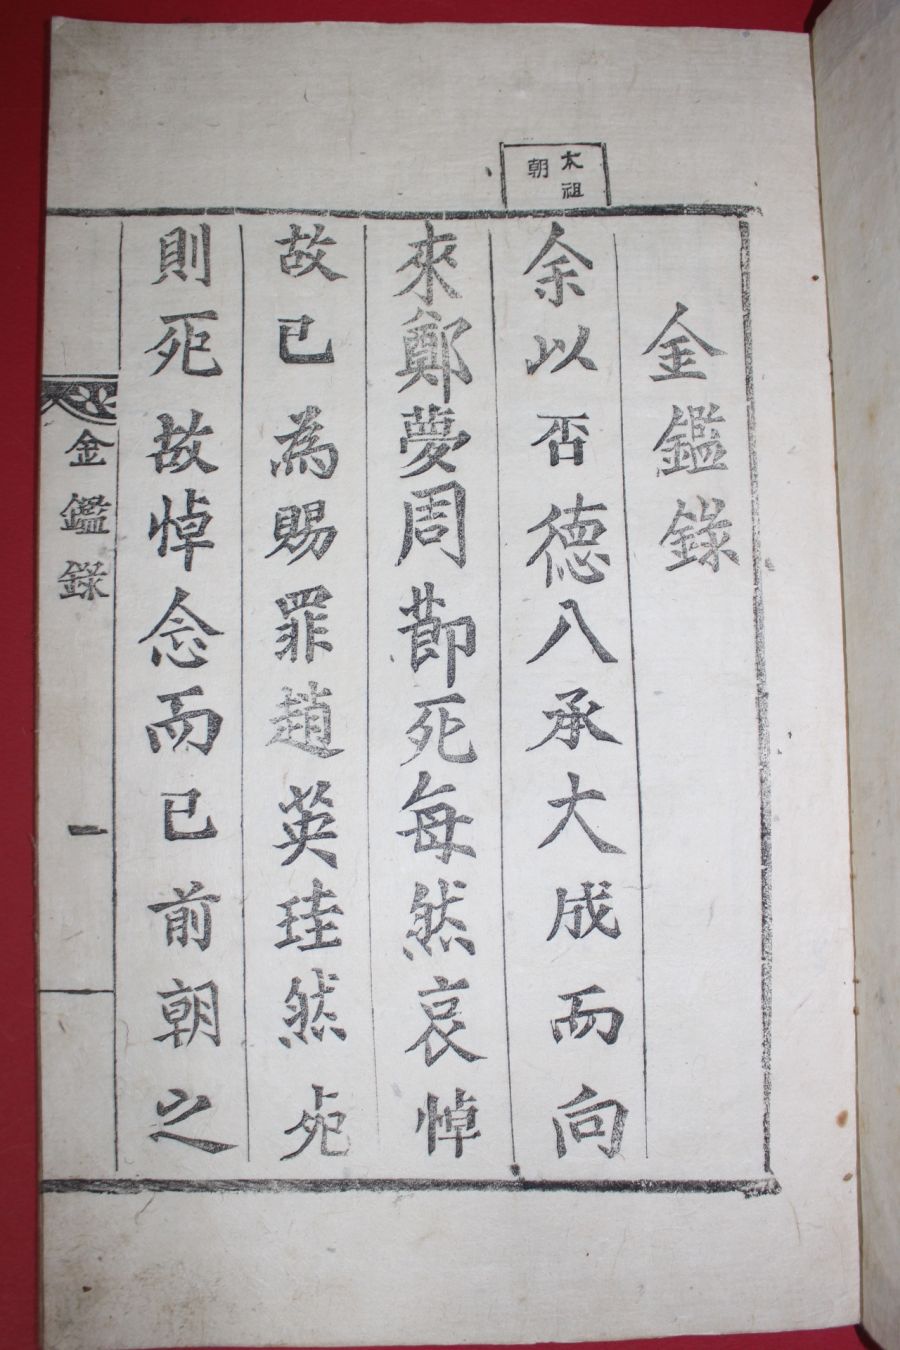 太祖
朝
金鑑錄
余以否德入承大成而向
來鄭夢周節死每然哀悼
故已為賜罪趙英珪然死
則死故悼念而已前朝之
金鑑錄
一